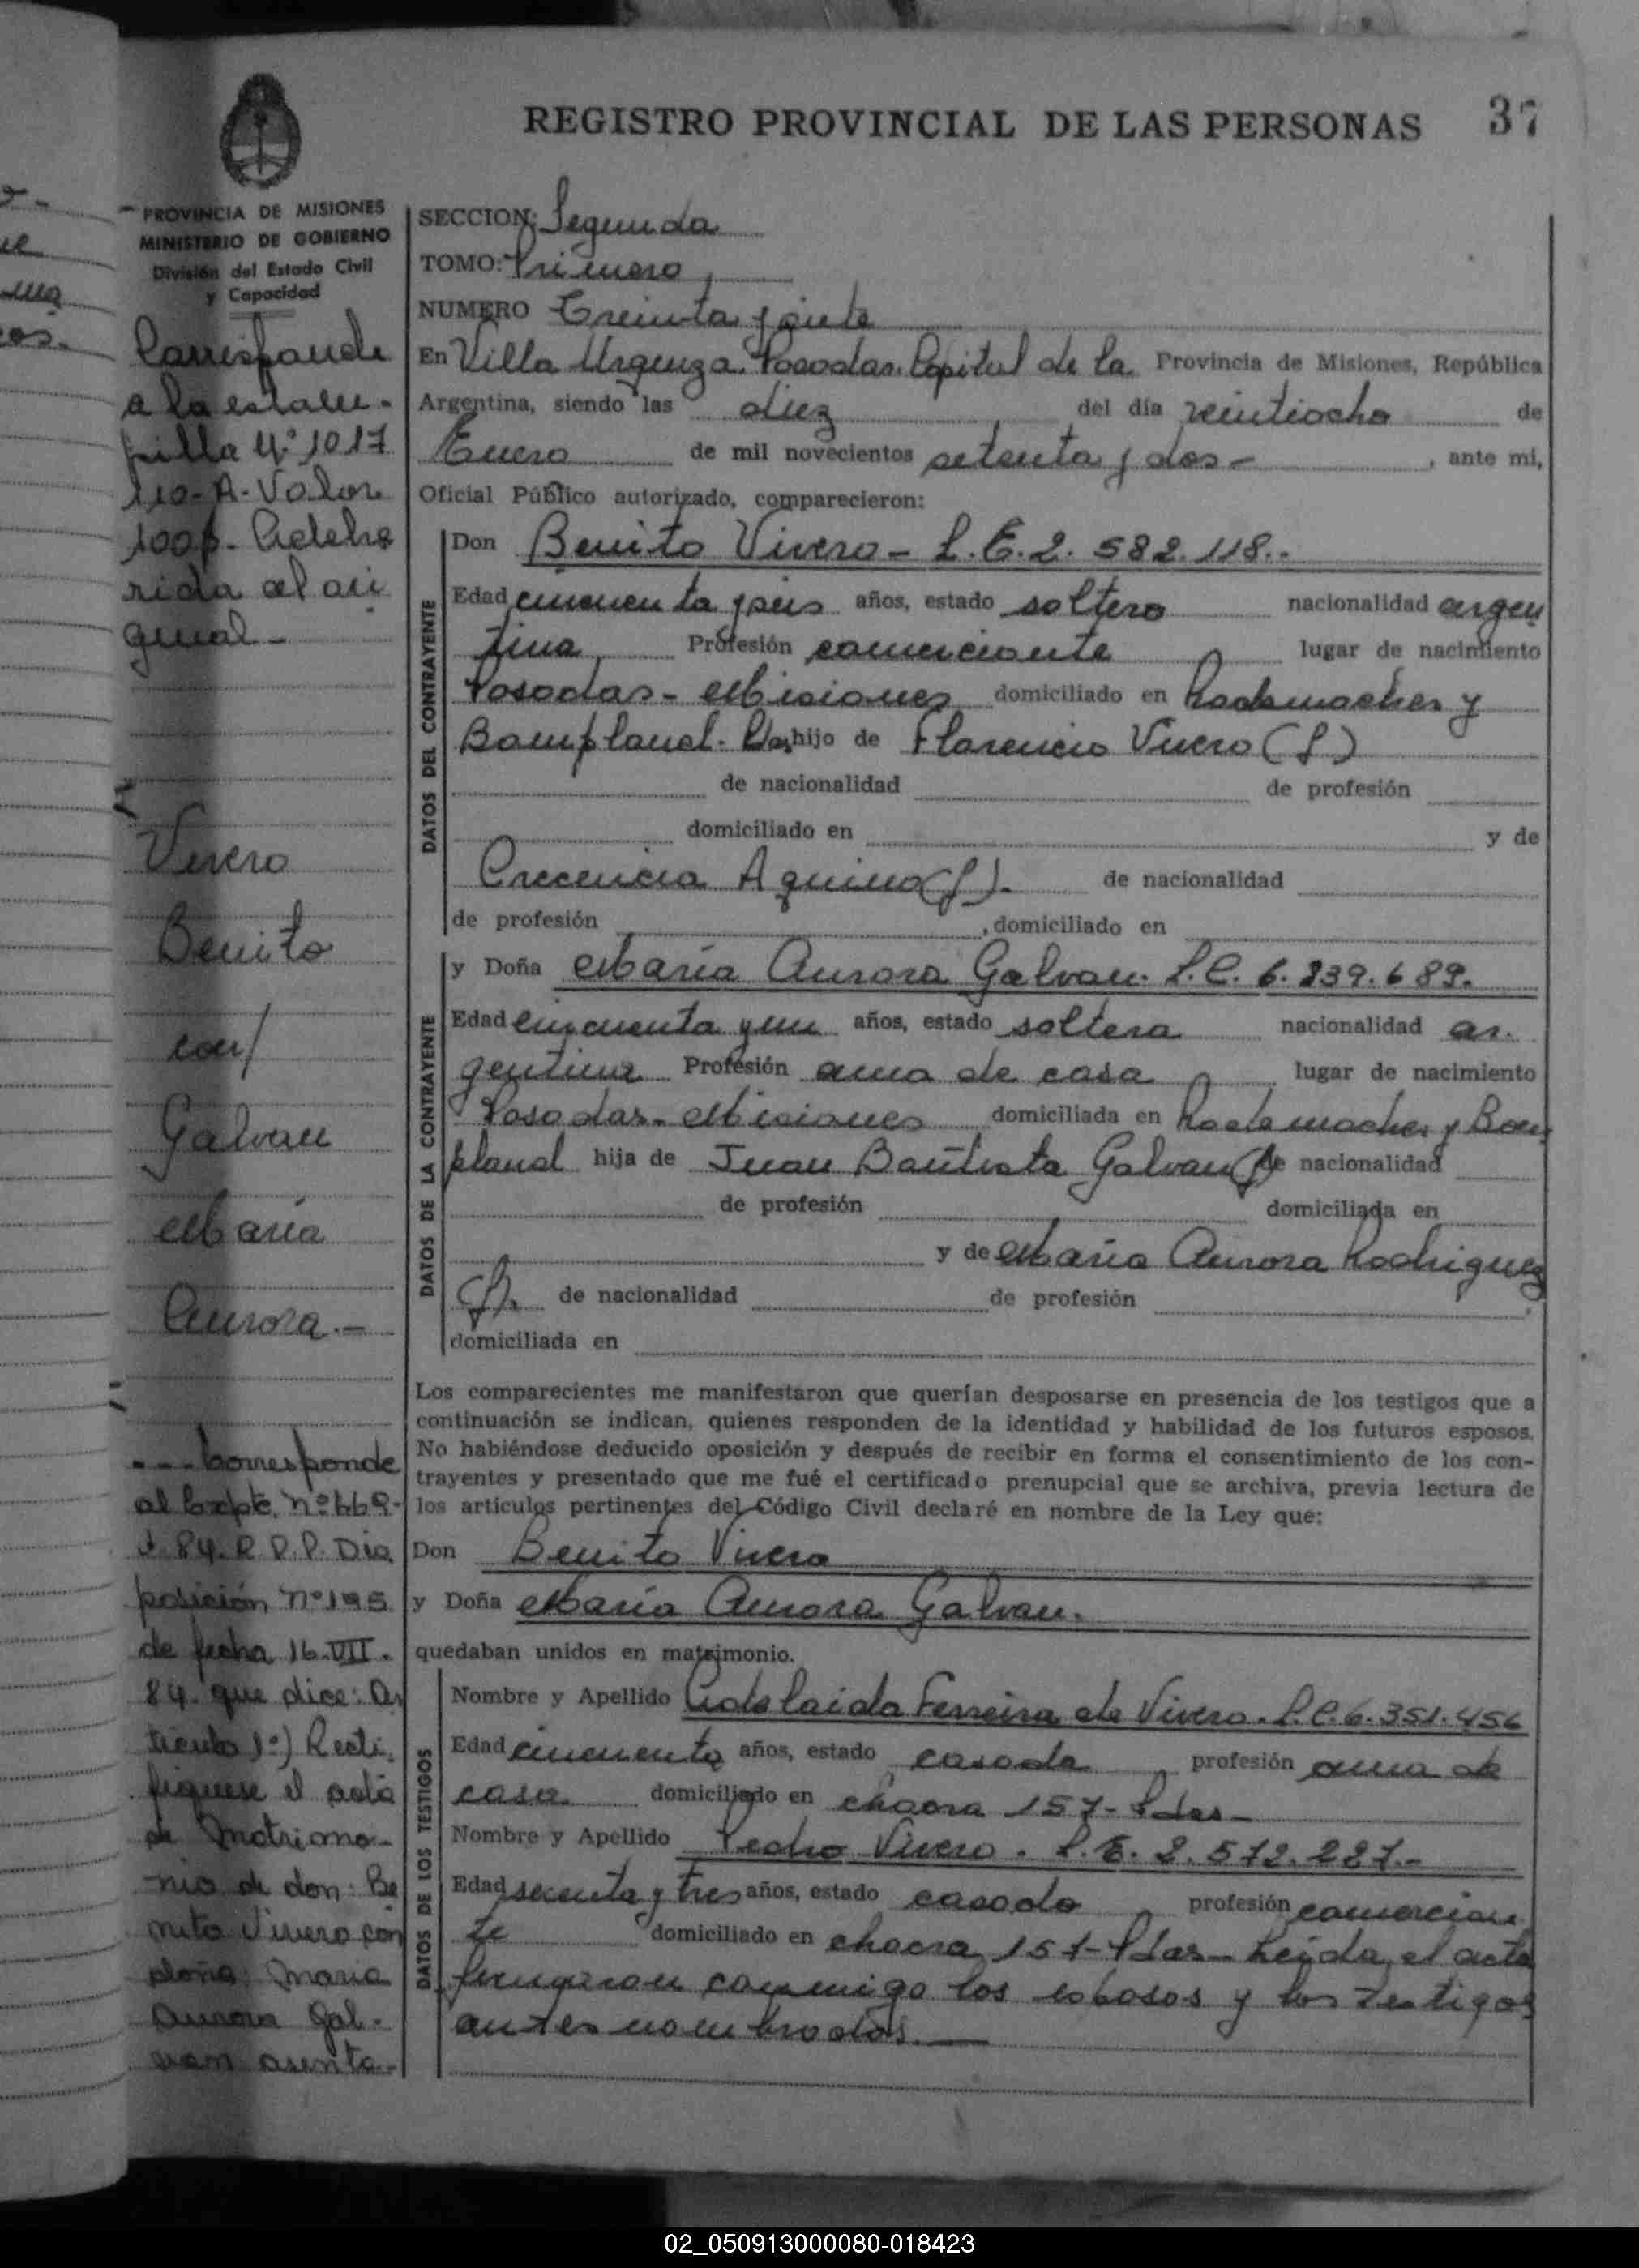 REGISTRO PROVINCIAL DE LAS PERSONAS 37
PROVINCIA DE MISIONES
MINISTERIO DE GOBIERNO
División del Estado Civil
y Capacidad
Corresponde
a la estam-
pilla Nº 1017
110-A-Valor
100$- Adehe
rida al ori
ginal-
Vivero
Benito
con/
Galvan
María
Aurora.-
---Corresponde
al Expte. nº 668-
J-84. R.P.P. Dis
posición nº 195
de fecha 16.VII.
84. que dice: Ar
tículo 1º) Recti,
fíquese el acta
de Matrimo-
nio de don: Be
nito Vivero con
doña: María
Aurora Gal-
van asenta-
SECCION: Segunda
TOMO: Primero
NUMERO Treinta y siete
En Villa Urquiza. Posadas. Capital de la Provincia de Misiones, República
Argentina, siendo las diez del día veintiocho de
Enero de mil novecientos setenta y dos- , ante mi,
Oficial Público autorizado, comparecieron:
DATOS DEL CONTRAYENTE
Don Benito Vivero - L.E. 2.582.118.-
Edad cincuenta y seis años, estado soltero nacionalidad argen
tina Profesión comerciante lugar de nacimiento
Posadas - Misiones domiciliado en Rademacher y
Bompland. Pdas hijo de Florencio Vivero (f)
de nacionalidad de profesión
domiciliado en y de
Crecencia Aquino (f). de nacionalidad
de profesión , domiciliado en
DATOS DE LA CONTRAYENTE
y Doña María Aurora Galvan. L.C. 6.839.689.
Edad cincuenta y un años, estado soltera nacionalidad ar.
gentina Profesión ama de casa lugar de nacimiento
Posadas - Misiones domiciliada en Rademacher y Bom
pland hija de Juan Bautista Galvan (f) de nacionalidad
de profesión domiciliada en
y de María Aurora Rodriguez
(f). de nacionalidad de profesión
domiciliada en
Los comparecientes me manifestaron que querían desposarse en presencia de los testigos que a
continuación se indican, quienes responden de la identidad y habilidad de los futuros esposos.
No habiéndose deducido oposición y después de recibir en forma el consentimiento de los con-
trayentes y presentado que me fué el certificado prenupcial que se archiva, previa lectura de
los artículos pertinentes del Código Civil declaré en nombre de la Ley que:
Don Benito Vivero
y Doña María Aurora Galvan.
quedaban unidos en matrimonio.
DATOS DE LOS TESTIGOS
Nombre y Apellido Adelaida Ferreira de Vivero. L.C. 6.351.456
Edad cincuenta años, estado casada profesión ama de
casa domiciliado en chacra 157- Pdas-
Nombre y Apellido Pedro Vivero. L.E. 2.572.227.-
Edad sesenta y tres años, estado casado profesión comercian
te domiciliado en chacra 157- Pdas- Leída el acta
firmaron conmigo los esposos y los testigos
antes nombrados.
02_050913000080-018423